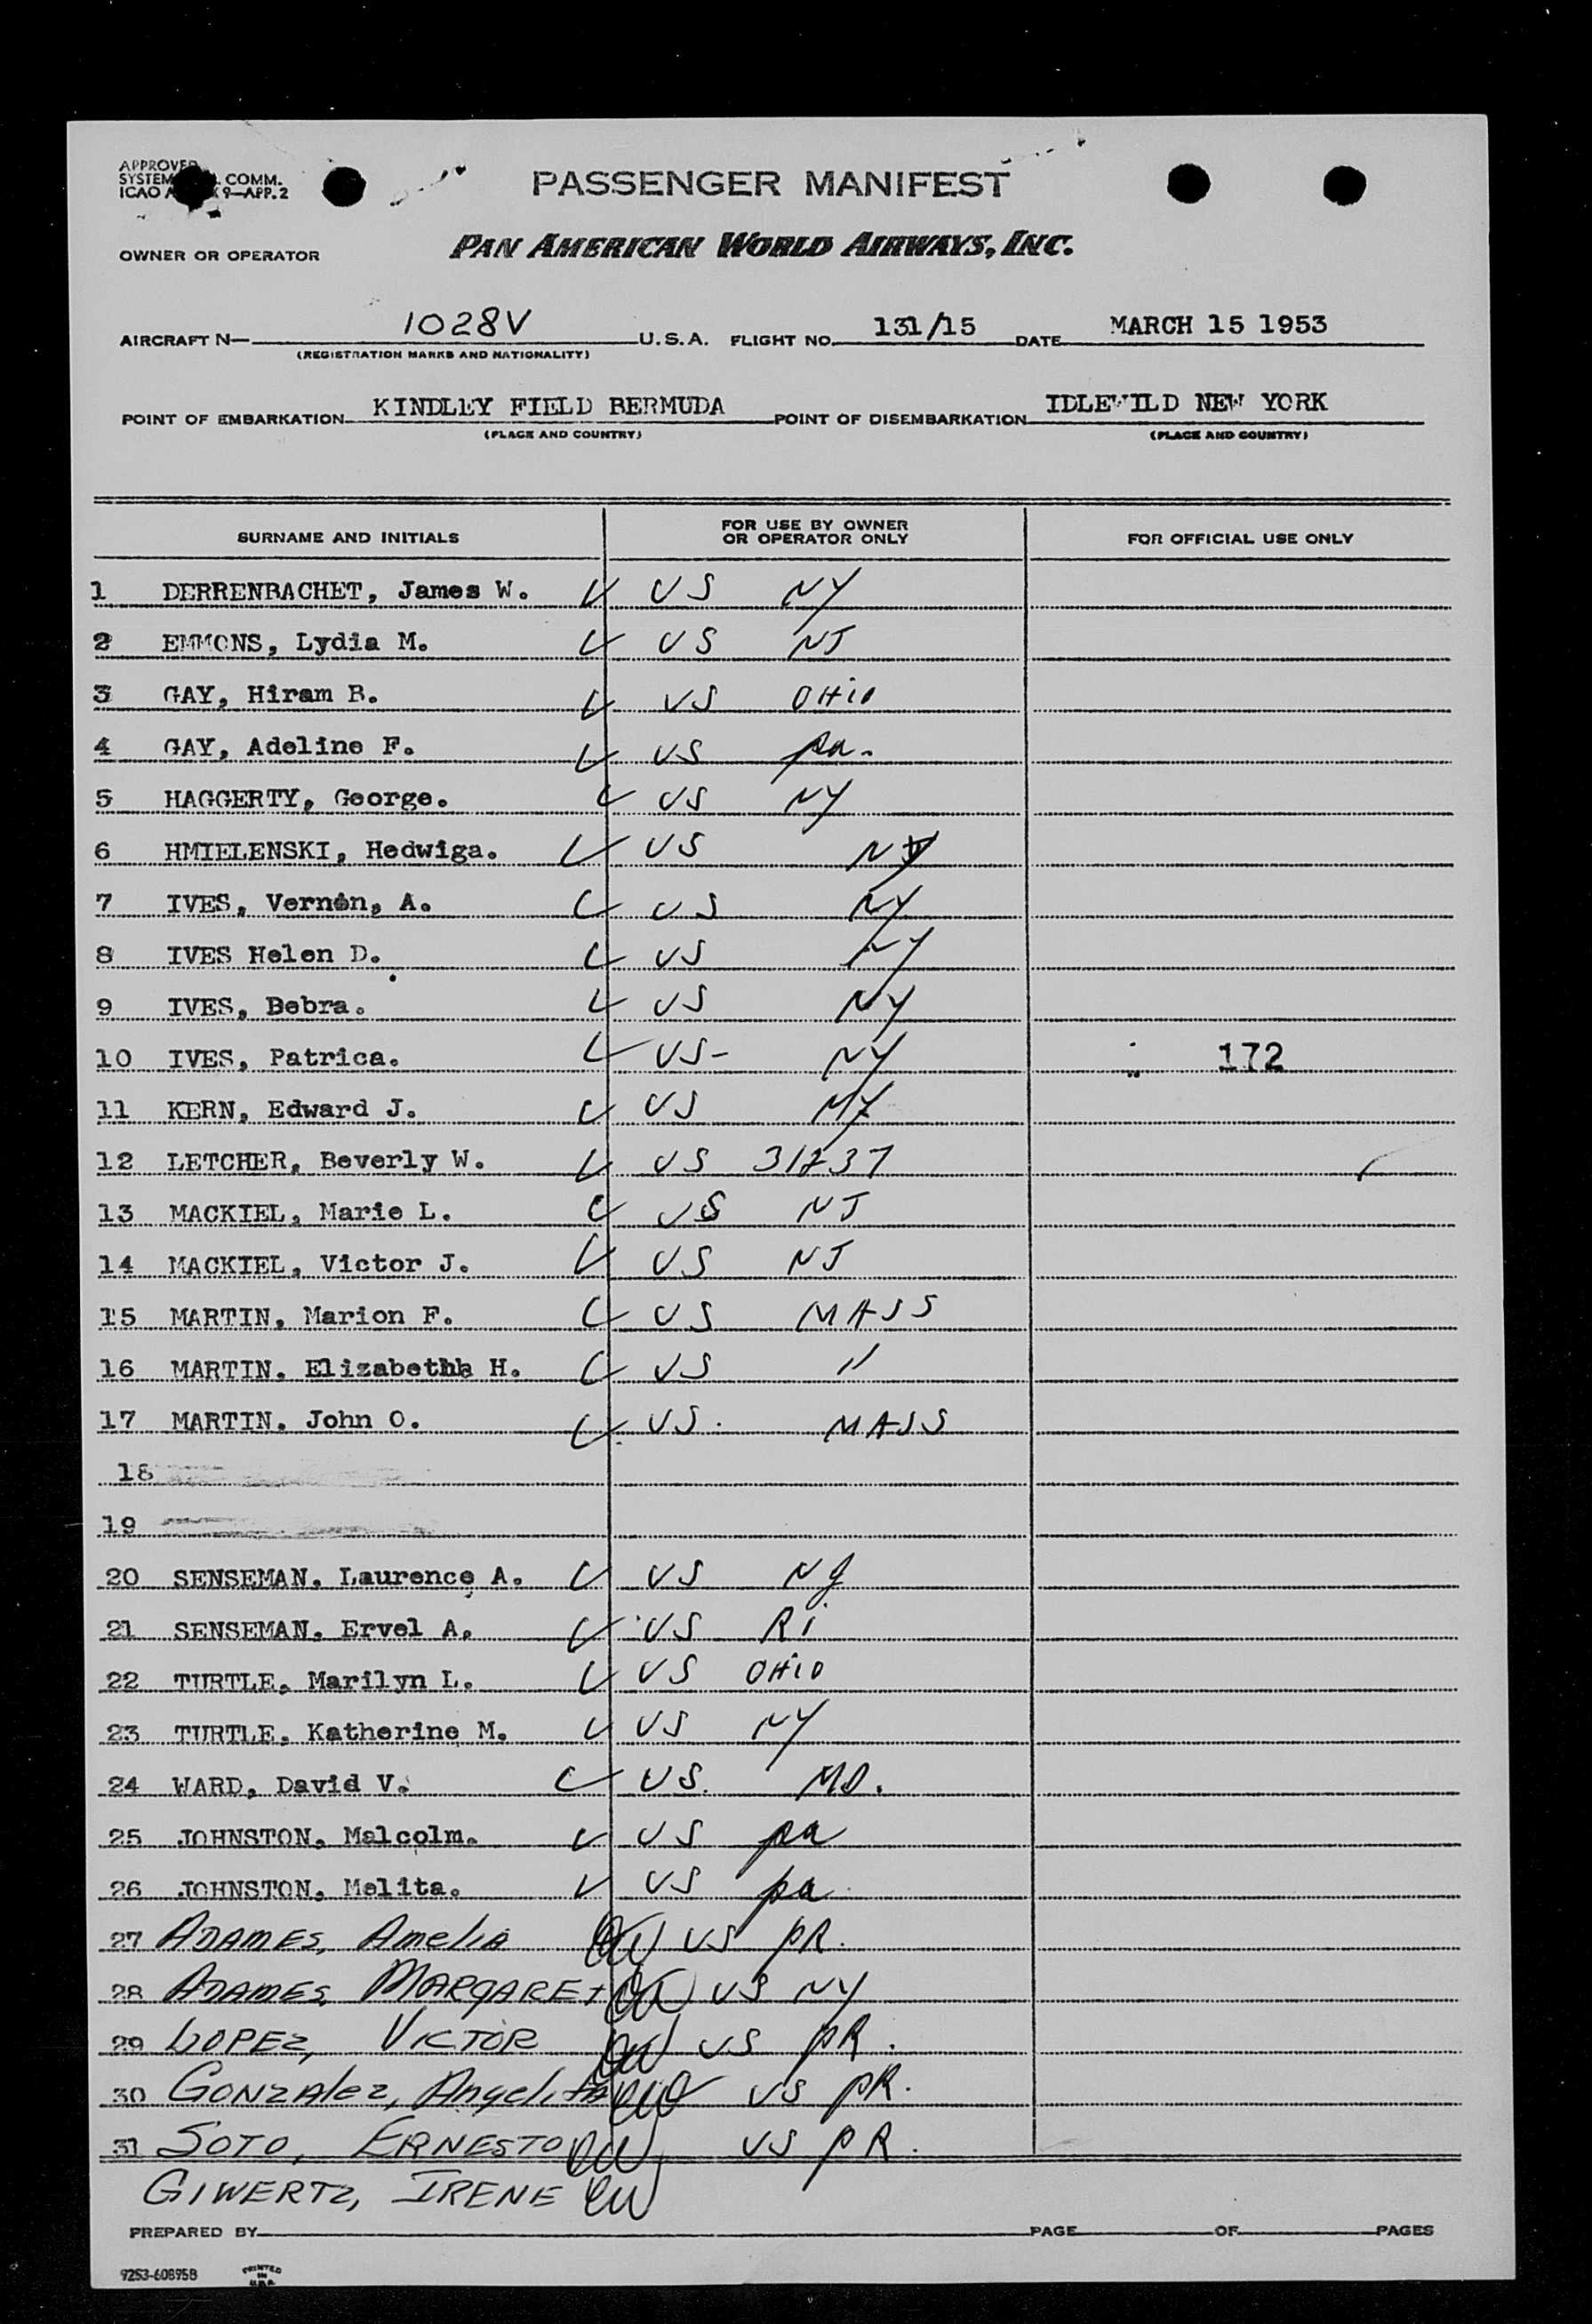 PASSENGER MANIFEST
COMM.
ICAO 9—APP.2
OWNER OR OPERATOR PAN AMERICAN WORLD AIRWAYS, INC.
AIRCRAFT N— 1028V U.S.A. FLIGHT NO. 131/15 DATE MARCH 15 1953
(REGISTRATION MARKS AND NATIONALITY)
POINT OF EMBARKATION KINDLEY FIELD BERMUDA POINT OF DISEMBARKATION IDLEWILD NEW YORK
(PLACE AND COUNTRY) (PLACE AND COUNTRY)
SURNAME AND INITIALS FOR USE BY OWNER OR OPERATOR ONLY FOR OFFICIAL USE ONLY
1 DERRENBACHET, James W. US NY
2 EMMONS, Lydia M. US NJ
3 GAY, Hiram B. US OHIO
4 GAY, Adeline F. US Pa.
5 HAGGERTY, George. US NY
6 HMIELENSKI, Hedwiga. US
7 IVES, Vernon, A. US NY
8 IVES Helen D. US NY
9 IVES, Debra. US NY
10 IVES, Patrica. US- NY 172
11 KERN, Edward J. US NY
12 LETCHER, Beverly W. US
13 MACKIEL, Marie L. US NJ
14 MACKIEL, Victor J. US NJ
15 MARTIN. Marion F. US MASS
16 MARTIN. Elizabethh H. US "
17 MARTIN. John O. US. MASS
18
19
20 SENSEMAN. Laurence A. US
21 SENSEMAN. Ervel A. US Ri
22 TURTLE. Marilyn L. US OHiO
23 TURTLE. Katherine M. US NY
24 WARD, David V. US. MD.
25 JOHNSTON. Malcolm. US pa
26 JOHNSTON. Melita. US pa
27 ADAMES, Amelia US PR.
28 ADAMES, MARGARET US NY
29 LOPEZ, VICTOR US PR.
30 GONZALEZ, Angelita US PR.
31 SOTO, ERNESTO US PR.
GIWERTZ, IRENE
PREPARED BY PAGE OF PAGES
9253-60895B PRINTED IN U.S.A.